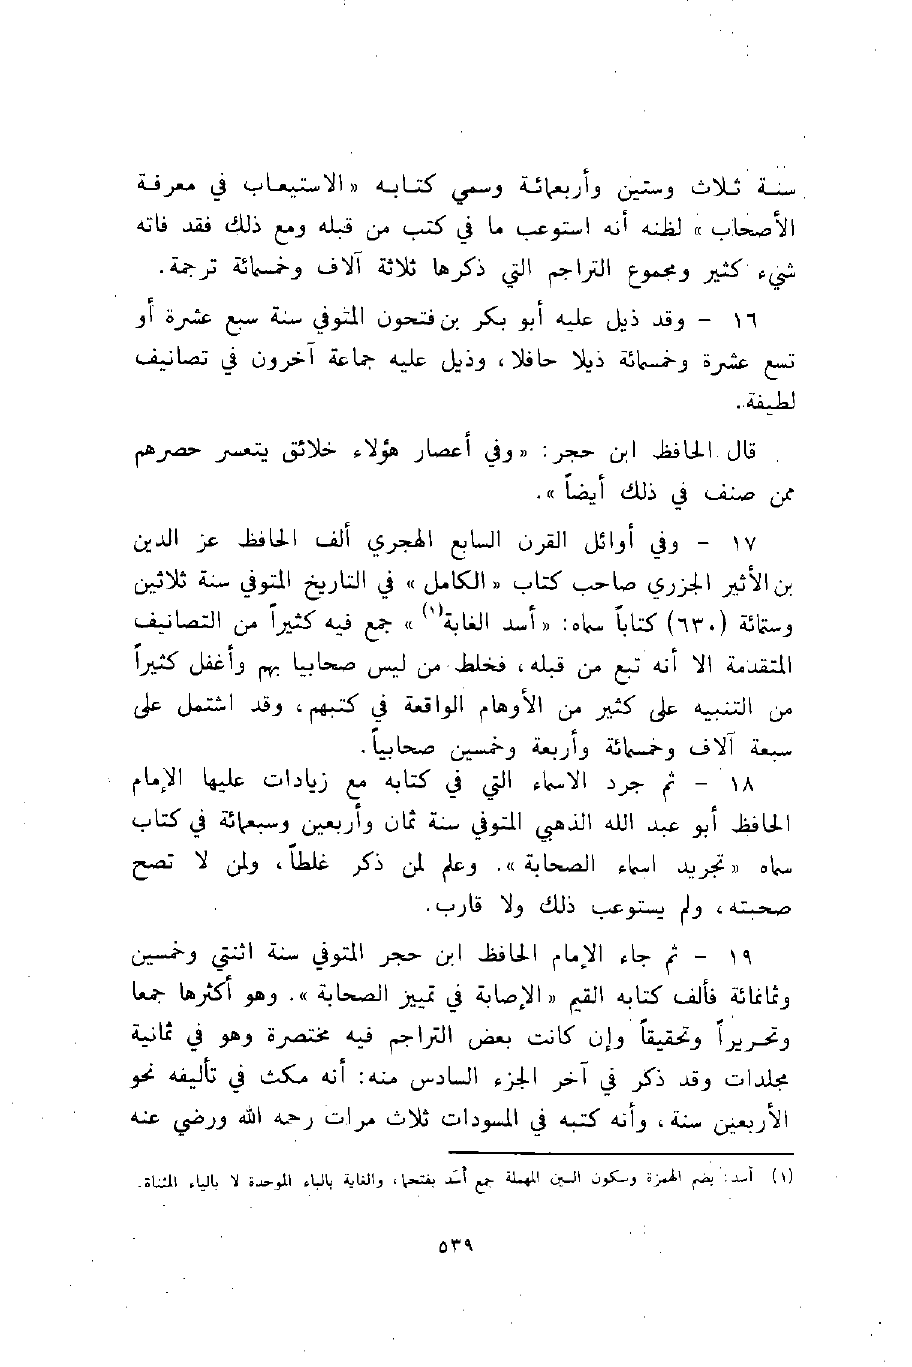 سنة ثلاث وستين وأربعمائة وسمي كتابه « الاستيعاب في معرفة
الأصحاب » لظنه أنه استوعب ما في كتب من قبله ومع ذلك فقد فاته
شيء كثير ومجموع التراجم التي ذكرها ثلاثة آلاف وخمسمائة ترجمة.
١٦ - وقد ذيل عليه أبو بكر بن فتحون المتوفي سنة سبع عشرة أو
تسع عشرة وخمسمائة ذيلا حافلا، وذيل عليه جماعة آخرون في تصانيف
لطيفة.
قال الحافظ ابن حجر: « وفي أعصار هؤلاء خلائق يتعسر حصرهم
ممن صنف في ذلك أيضاً ».
١٧ - وفي أوائل القرن السابع الهجري ألف الحافظ عز الدين
بن الأثير الجزري صاحب كتاب « الكامل » في التاريخ المتوفي سنة ثلاثين
وستمائة (٦٣٠) كتاباً سماه: « أسد الغابة(١) » جمع فيه كثيراً من التصانيف
المتقدمة الا أنه تبع من قبله، فخلط من ليس صحابيا بهم وأغفل كثيراً
من التنبيه على كثير من الأوهام الواقعة في كتبهم، وقد اشتمل على
سبعة آلاف وخمسمائة وأربعة وخمسين صحابياً.
١٨ - ثم جرد الاسماء التي في كتابه مع زيادات عليها الإمام
الحافظ أبو عبد الله الذهبي المتوفي سنة ثمان وأربعين وسبعمائة في كتاب
سماه « تجريد اسماء الصحابة ». وعلم لمن ذكر غلطاً، ولمن لا تصح
صحبته، ولم يستوعب ذلك ولا قارب.
١٩ - ثم جاء الإمام الحافظ ابن حجر المتوفي سنة اثنتي وخمسين
وثمانمائة فألف كتابه القيم « الإصابة في تمييز الصحابة ». وهو أكثرها جمعا
وتحريراً وتحقيقاً وإن كانت بعض التراجم فيه مختصرة وهو في ثمانية
مجلدات وقد ذكر في آخر الجزء السادس منه: أنه مكث في تأليفه نحو
الأربعين سنة، وأنه كتبه في المسودات ثلاث مرات رحمه الله ورضي عنه
(١) أسد: بضم الهمزة وسكون السين المهملة جمع أسَد بفتحها، والغابة بالباء الموحدة لا بالياء المثناة.
٥٣٩